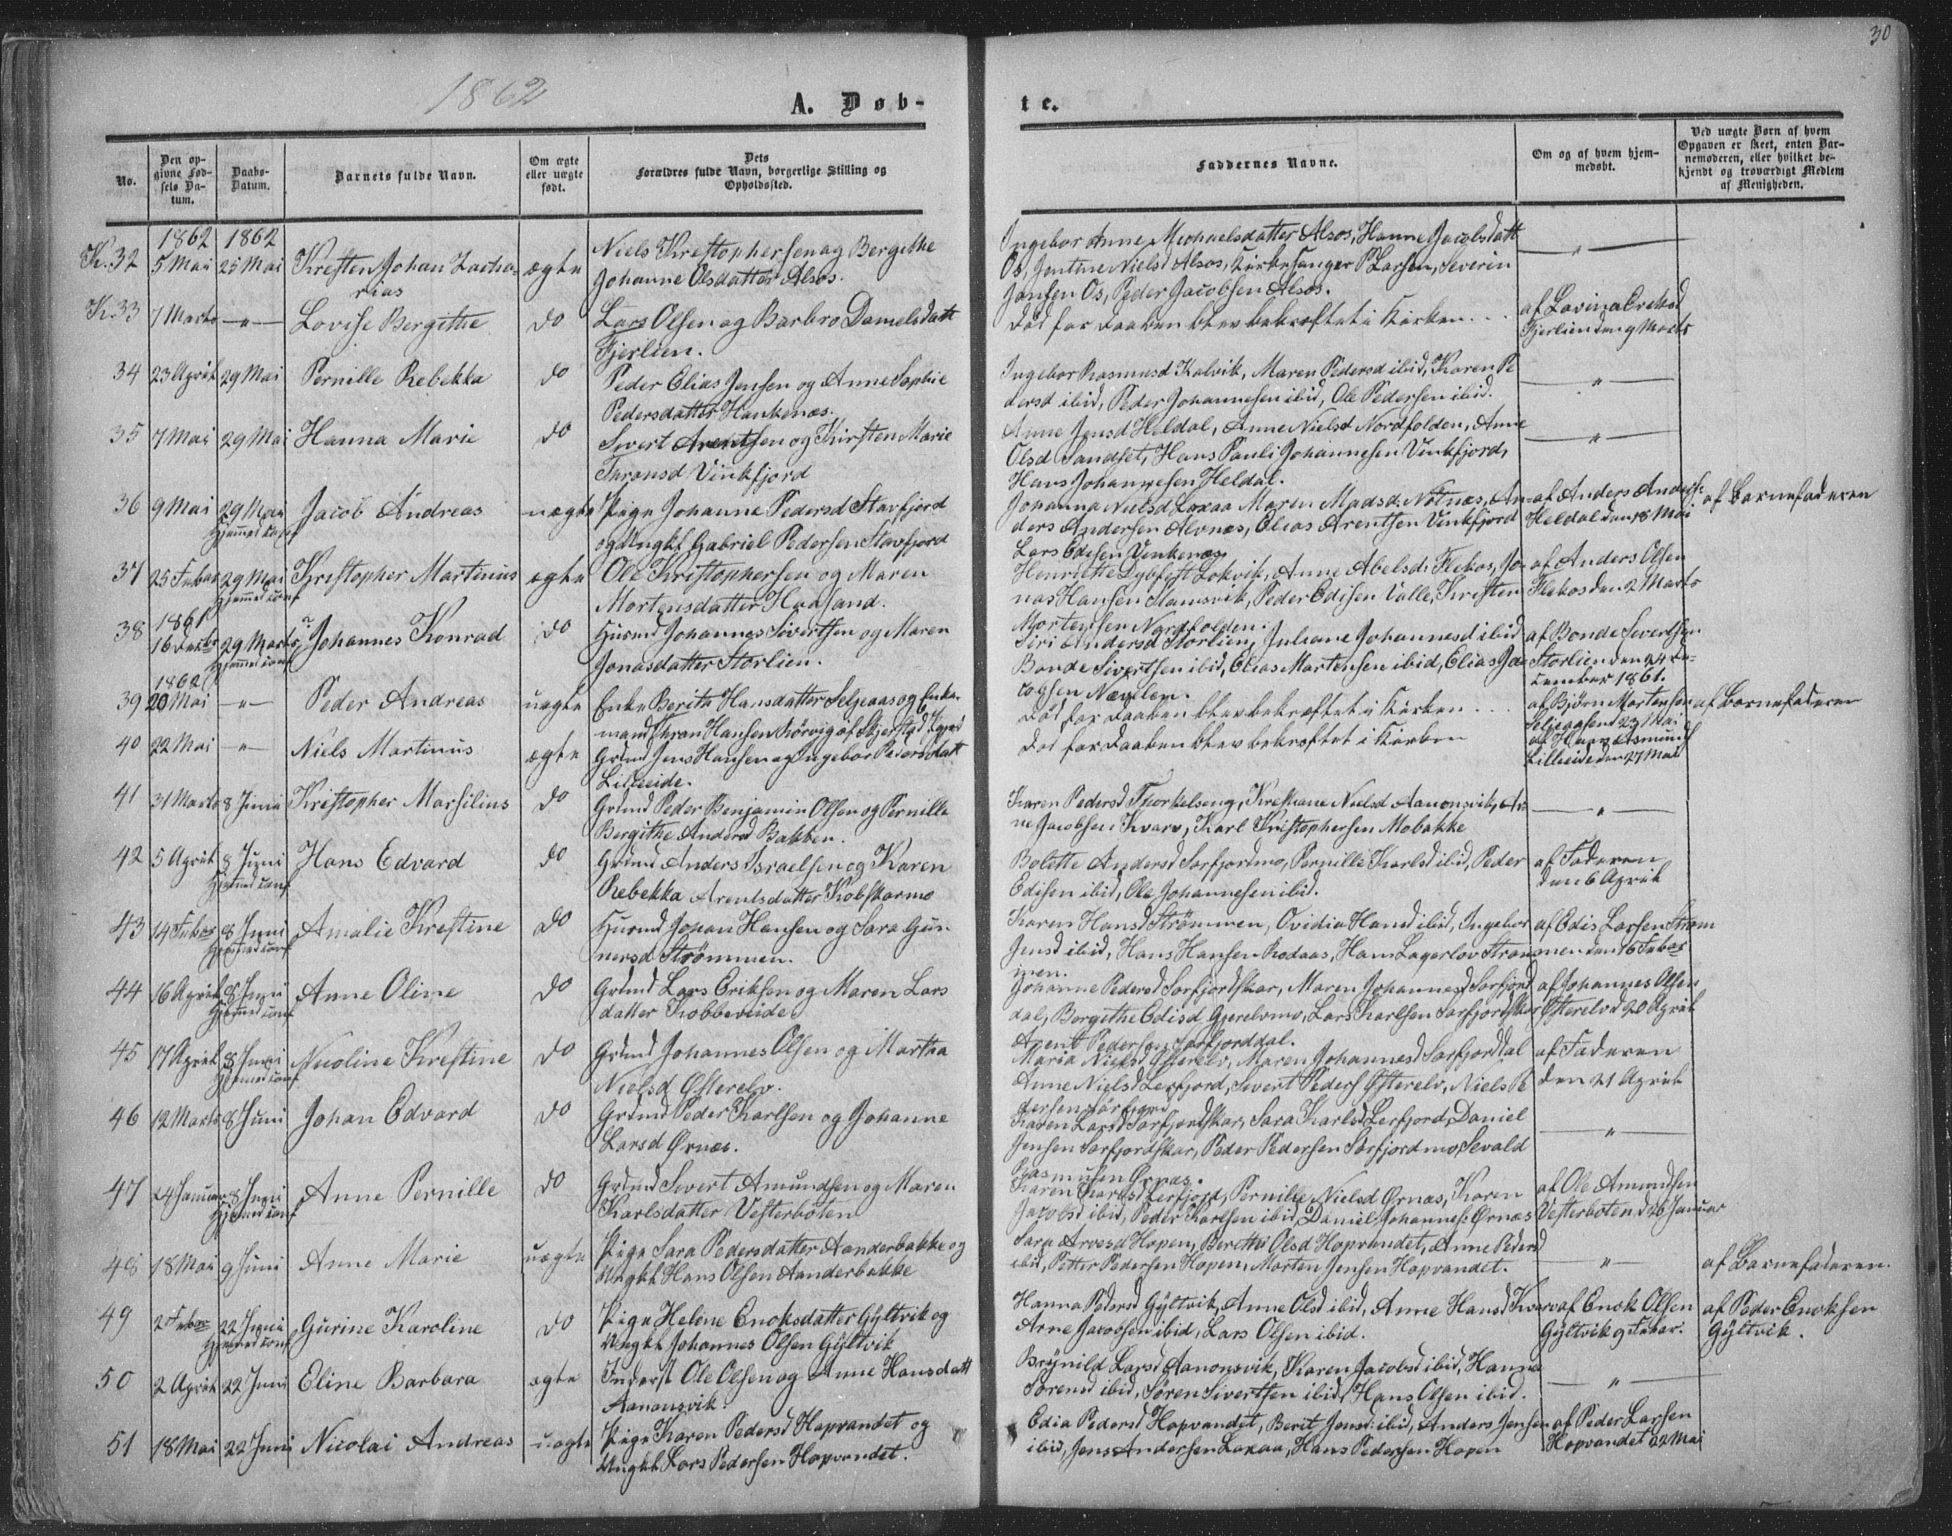 30
1862
A. Døb-
te.
No.
Den op-
givne Fød-
sels Da-
tum.
Daabs-
Datum.
Barnets fulde Navn.
Om ægte
eller uægte
født.
Dets
Forældres fulde Navn, borgerlige Stilling og
Opholdssted.
Faddernes Navne.
Om og af hvem hjem-
medøbt.
Ved uægte Børn af hvem
Opgaven er skeet, enten Bar-
nemoderen, eller hvilket be-
kjendt og troværdigt Medlem
af Menigheden.
1862 1862
K. 32 5 Mai 25 Mai Kresten Johan Zacha-
rias
ægte
Niels Kristophersen og Bergithe
Johanne Olsdatter Alsos.
Ingebor Anne Michaelsdatter Alsos, Hanne Jacobsdatt
Os, Jentine Nielsd Alsos, Kirkesanger P Larsen, Severin
Jensen Os, Peder Jacobsen Alsos.
— " —
K. 33 7 Marts — " — Lovise Bergithe do
Lars Olsen og Barbro Danielsdatt
Fjerlien.
Død før Daaben blev bekræftet i Kirken . . .
af Lovina Eriksd
Fjerlien den 9 Marts
34 23 April 29 Mai Pernille Rebekka do
Peder Elias Jensen og Anne Sophie
Pedersdatter Hankenæs.
Ingebor Rasmusd Kalvik, Maren Pedersd ibid, Karen Pe
dersd ibid, Peder Johannesen ibid, Ole Pedersen ibid.
— " —
35 7 Mai 29 Mai Hanna Marie do
Sivert Arentsen og Kirsten Marie
Thronsd Vinkfjord
Anne Jensd Heldal, Anne Nielsd Nordfolden, Anne
Olsd Sandset, Hans Pauli Johannesen Vinkfjord,
Hans Johannesen Heldal.
— " —
36 9 Mai 29 Mai
Hjemmed conf
Jacob Andreas uægte
Pige Johanne Pedersd Stavfjord
og Ungkf Gabriel Pedersen Stavfjord
Johanna Nielsd Laxaa Maren Madsd. Notnæs, An-
ders Andersen Alvnæs, Elias Arentsen Vinkfjord
Lars Edisen Vinkenæs.
af Anders Anders:
Heldal den 18 Mai
af Barnefaderen
37 25 Febar 29 Mai
Hjemmed conf
Kristopher Martinus ægte
Ole Kristophersen og Maren
Mortensdatter Haasand.
Henriette Dybfest Løkvik, Anne Abelsd: Flekos, Jo-
nas Hansen Stamsvik, Peder Edisen Valle, Kristen
Mortensen Nordfolden.
af Anders Olsen
Flekos den 2 Marts
1861
38 16 Decbr 29 Marts
Hjemmed conf
Johannes Konrad do
Husmd Johannes Sivertsen og Maren
Jonasdatter Storlien.
Siri Andersd Storlien, Juliane Johannesd ibid
Bonde Sivertsen ibid, Elias Martensen ibid, Elias Ja-
cogsen Nævelen.
af Bonde Sivertsen
Storlien den 24 De-
cember 1861.
1862
39 20 Mai — " — Peder Andreas uægte
Enke Berith Hansdatter Seljeaas og Enke
mand Thron Hansen Rörvig af Skjerstad
Død før Daaben blev bekræftet i Kirken . . .
af Bjørn Mortensen
Seljeaasen d 23 Mai
af Barnefaderen
40 22 Mai — " — Niels Martinus ægte
Grdmd Jens Hansen og Ingebor Pedersdatt
Lilleeide.
Død før Daaben blev bekræftet i Kirken
af Hans Asmunds
Lilleeide den 27 Mai
41 31 Marts 8 Juni Kristopher Marsilius do
Grdmd Peder Benjamin Olsen og Pernille
Bergithe Andersd Bakken.
Karen Pedersd Thorkelseng, Krestiane Nielsd Aanonsvik, Ar-
ne Jacobsen Kvarv, Karl Kristophersen Mobakke
— " —
42 5 April 8 Juni
Hjemmed conf
Hans Edvard do
Grdmd Anders Israelsen og Karen
Rebekka Arentsdatter Kobskarmo
Bolette Andersd Sørfjordmo, Pernille Karlsd ibid, Peder
Edisen ibid, Ole Johannesen ibid.
af Faderen
den 6 April
43 14 Febar 8 Juni
Hjemmed conf
Amalie Krestine do
Husmd Johan Hansen og Sara Gun
nersd Strömmen.
Karen Hansd Strömmen, Ovidia Hansd ibid, Ingebor
Jensd ibid, Hans Hansen Rodaas, Hans Lagerlov Ström
men.
af Edis Larsen Strøm
men den 16 Febar
44 16 April 8 Juni
Hjemmed conf
Anne Oline do
Grdmd Lars Eriksen og Maren Lars
datter Kobbeveide
Johanne Pedersd Sørfjordskar, Maren Johannesd Sørfjord
dal, Bergithe Edisd Gjerelvmo, Lars Karlsen Sørfjordskar
Arent Pedersen Sørfjorddal.
af Johannes Olsen
Østerelv d 20 April
45 17 April 8 Juni
Hjemmed conf
Nicoline Krestine do
Grdmd Johannes Olsen og Martha
Nielsd Østerelv.
Maria Nielsd Østerelv, Maren Johannesd Sørfjorddal
Anne Nielsd Lerfjord, Sivert Peders Østerelv, Niels Pe
dersen Sørfjord
af Faderen
den 21 April
46 12 Marts 8 Juni Johan Edvard do
Grdmd Peder Karlsen og Johanne
Larsd Ørnæs.
Karen Larsd Sørfjordskar, Sara Karlsd Lerfjord, Daniel
Jensen Sørfjordskar, Peder Pedersen Sørfjordmo, Sevald
Rasmusen Ørnæs.
— " —
47 24 Januar 8 Juni
Hjemmed conf
Anne Pernille do
Grdmd Sivert Amundsen og Maren
Karlsdatter Vesterboten
Karen Karlsd Lerfjord, Pernille Nielsd Ørnæs, Karen
Jacobsd ibid, Peder Karlsen ibid, Daniel Johannes: Ørnæs
af Ole Amundsen
Vesterboten d 26 Januar
48 18 Mai 9 Juni Anne Marie uægte
Pige Sara Pedersdatter Aanderbakke og
Ungkf Hans Olsen Aanderbakke
Sara Arvesd Hopen, Berithe Olsd Hopvandet, Anne Pedersd
ibid, Petter Pedersen Hopen, Morten Jensen Hopvandet.
— " —
af Barnefaderen.
49 2 Febar 22 Juni
Hjemmed conf
Gurine Karoline do
Pige Helene Enoksdatter Gyltvik og
Ungkf Johannes Olsen Gyltvik
Hanna Pedersd Gyltvik, Anne Olsd ibid, Anne Hansd Kvarv
Arne Jacobsen ibid, Lars Olsen ibid.
af Enok Olsen
Gyltvik 9 Febar.
af Peder Enoksen
Gyltvik.
50 2 April 22 Juni Eline Barbara ægte
Inderst Ole Olsen og Anne Hansdatt
Aanonsvik.
Brynild Larsd Aanonsvik, Karen Jacobsd ibid, Hanna
Sørensd ibid, Søren Sivertsen ibid, Hans Olsen ibid.
— " —
51 18 Mai 22 Juni Nicolai Andreas uægte
Pige Karen Pedersd Hopvandet og
Ungkf Lars Pedersen Hopvandet.
Edia Pedersd Hopvandet, Berit Jensd: ibid, Anders Jensen
ibid, Jens Andersen Laxaa, Hans Pedersen Hopen
af Peder Larsen
Hopvandet 22 Mai